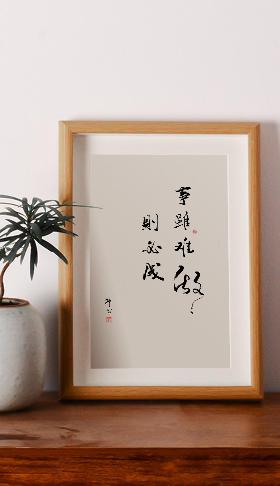 事雖难做
則必成